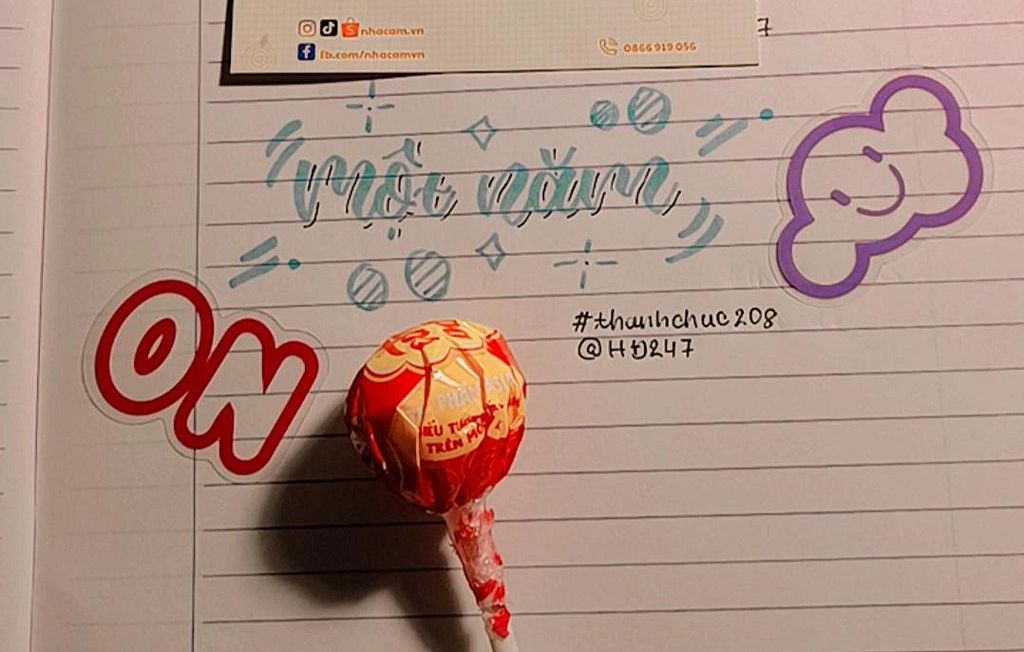 nhacam.vn
fb.com/nhacamvn
0866 919 056
7
một năm
#thanhchuc208
@HĐ247
ON
PHẦN
TRÊN